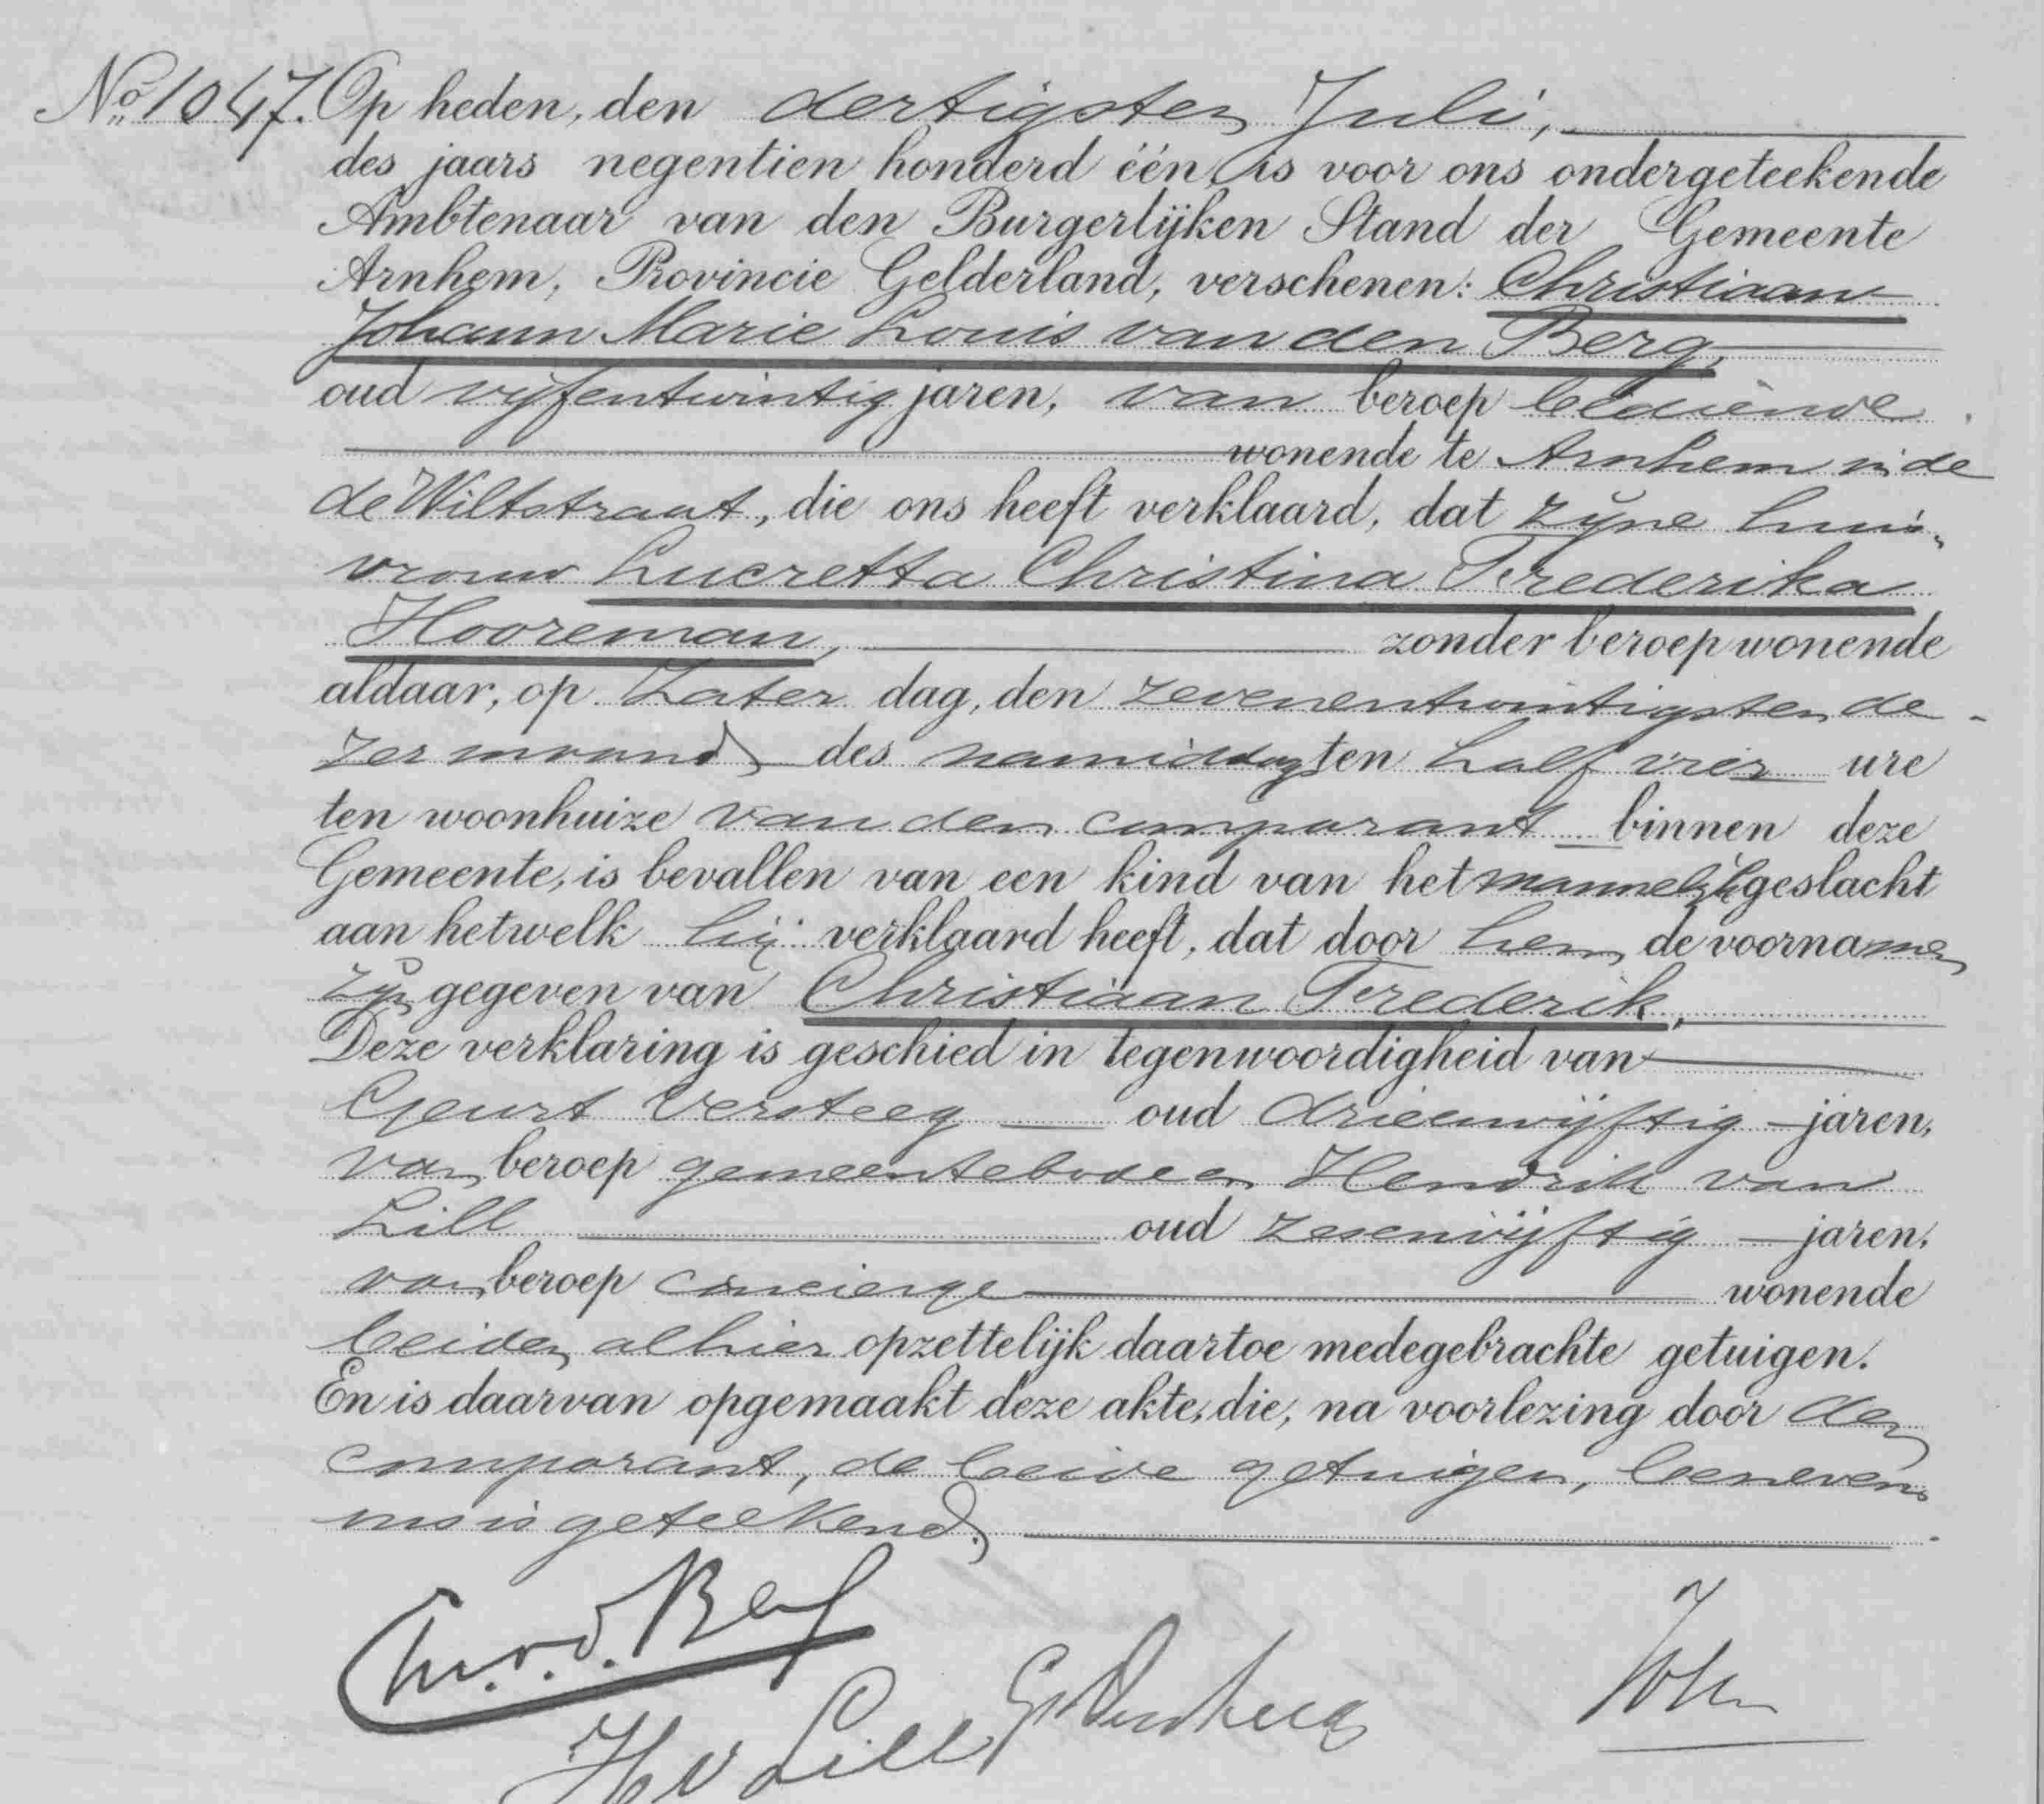 No 1047. Op heden, den dertigsten Juli,
des jaars negentien honderd één, is voor ons ondergeteekende
Ambtenaar van den Burgerlijken Stand der Gemeente
Arnhem, Provincie Gelderland, verschenen: Christiaan
Johann Marie Louis van den Berg,
oud vijfentwintig jaren, van beroep bediende
wonende te Arnhem in de
de Wiltstraat, die ons heeft verklaard, dat zijne huis-
vrouw Lucretta Christina Frederika
Hooreman, zonder beroep wonende
aldaar, op Zater dag, den zevenentwintigsten de-
zer maand des namiddags ten half vier ure
ten woonhuize van den comparant binnen deze
Gemeente, is bevallen van een kind van het mannelijk geslacht
aan hetwelk hij verklaard heeft, dat door hem de voornamen
zijn gegeven van Christiaan Frederik,
Deze verklaring is geschied in tegenwoordigheid van
Geurt Versteeg oud drieenvijftig jaren,
van beroep gemeentebode en Hendrik van
Lill oud zesenvijftig jaren,
van beroep concierge wonende
beiden alhier opzettelijk daartoe medegebrachte getuigen.
En is daarvan opgemaakt deze akte, die, na voorlezing door den
comparant, de beide getuigen, benevens
ons is geteekend.
Chr. v. d. Berg
H v Lill G Versteeg